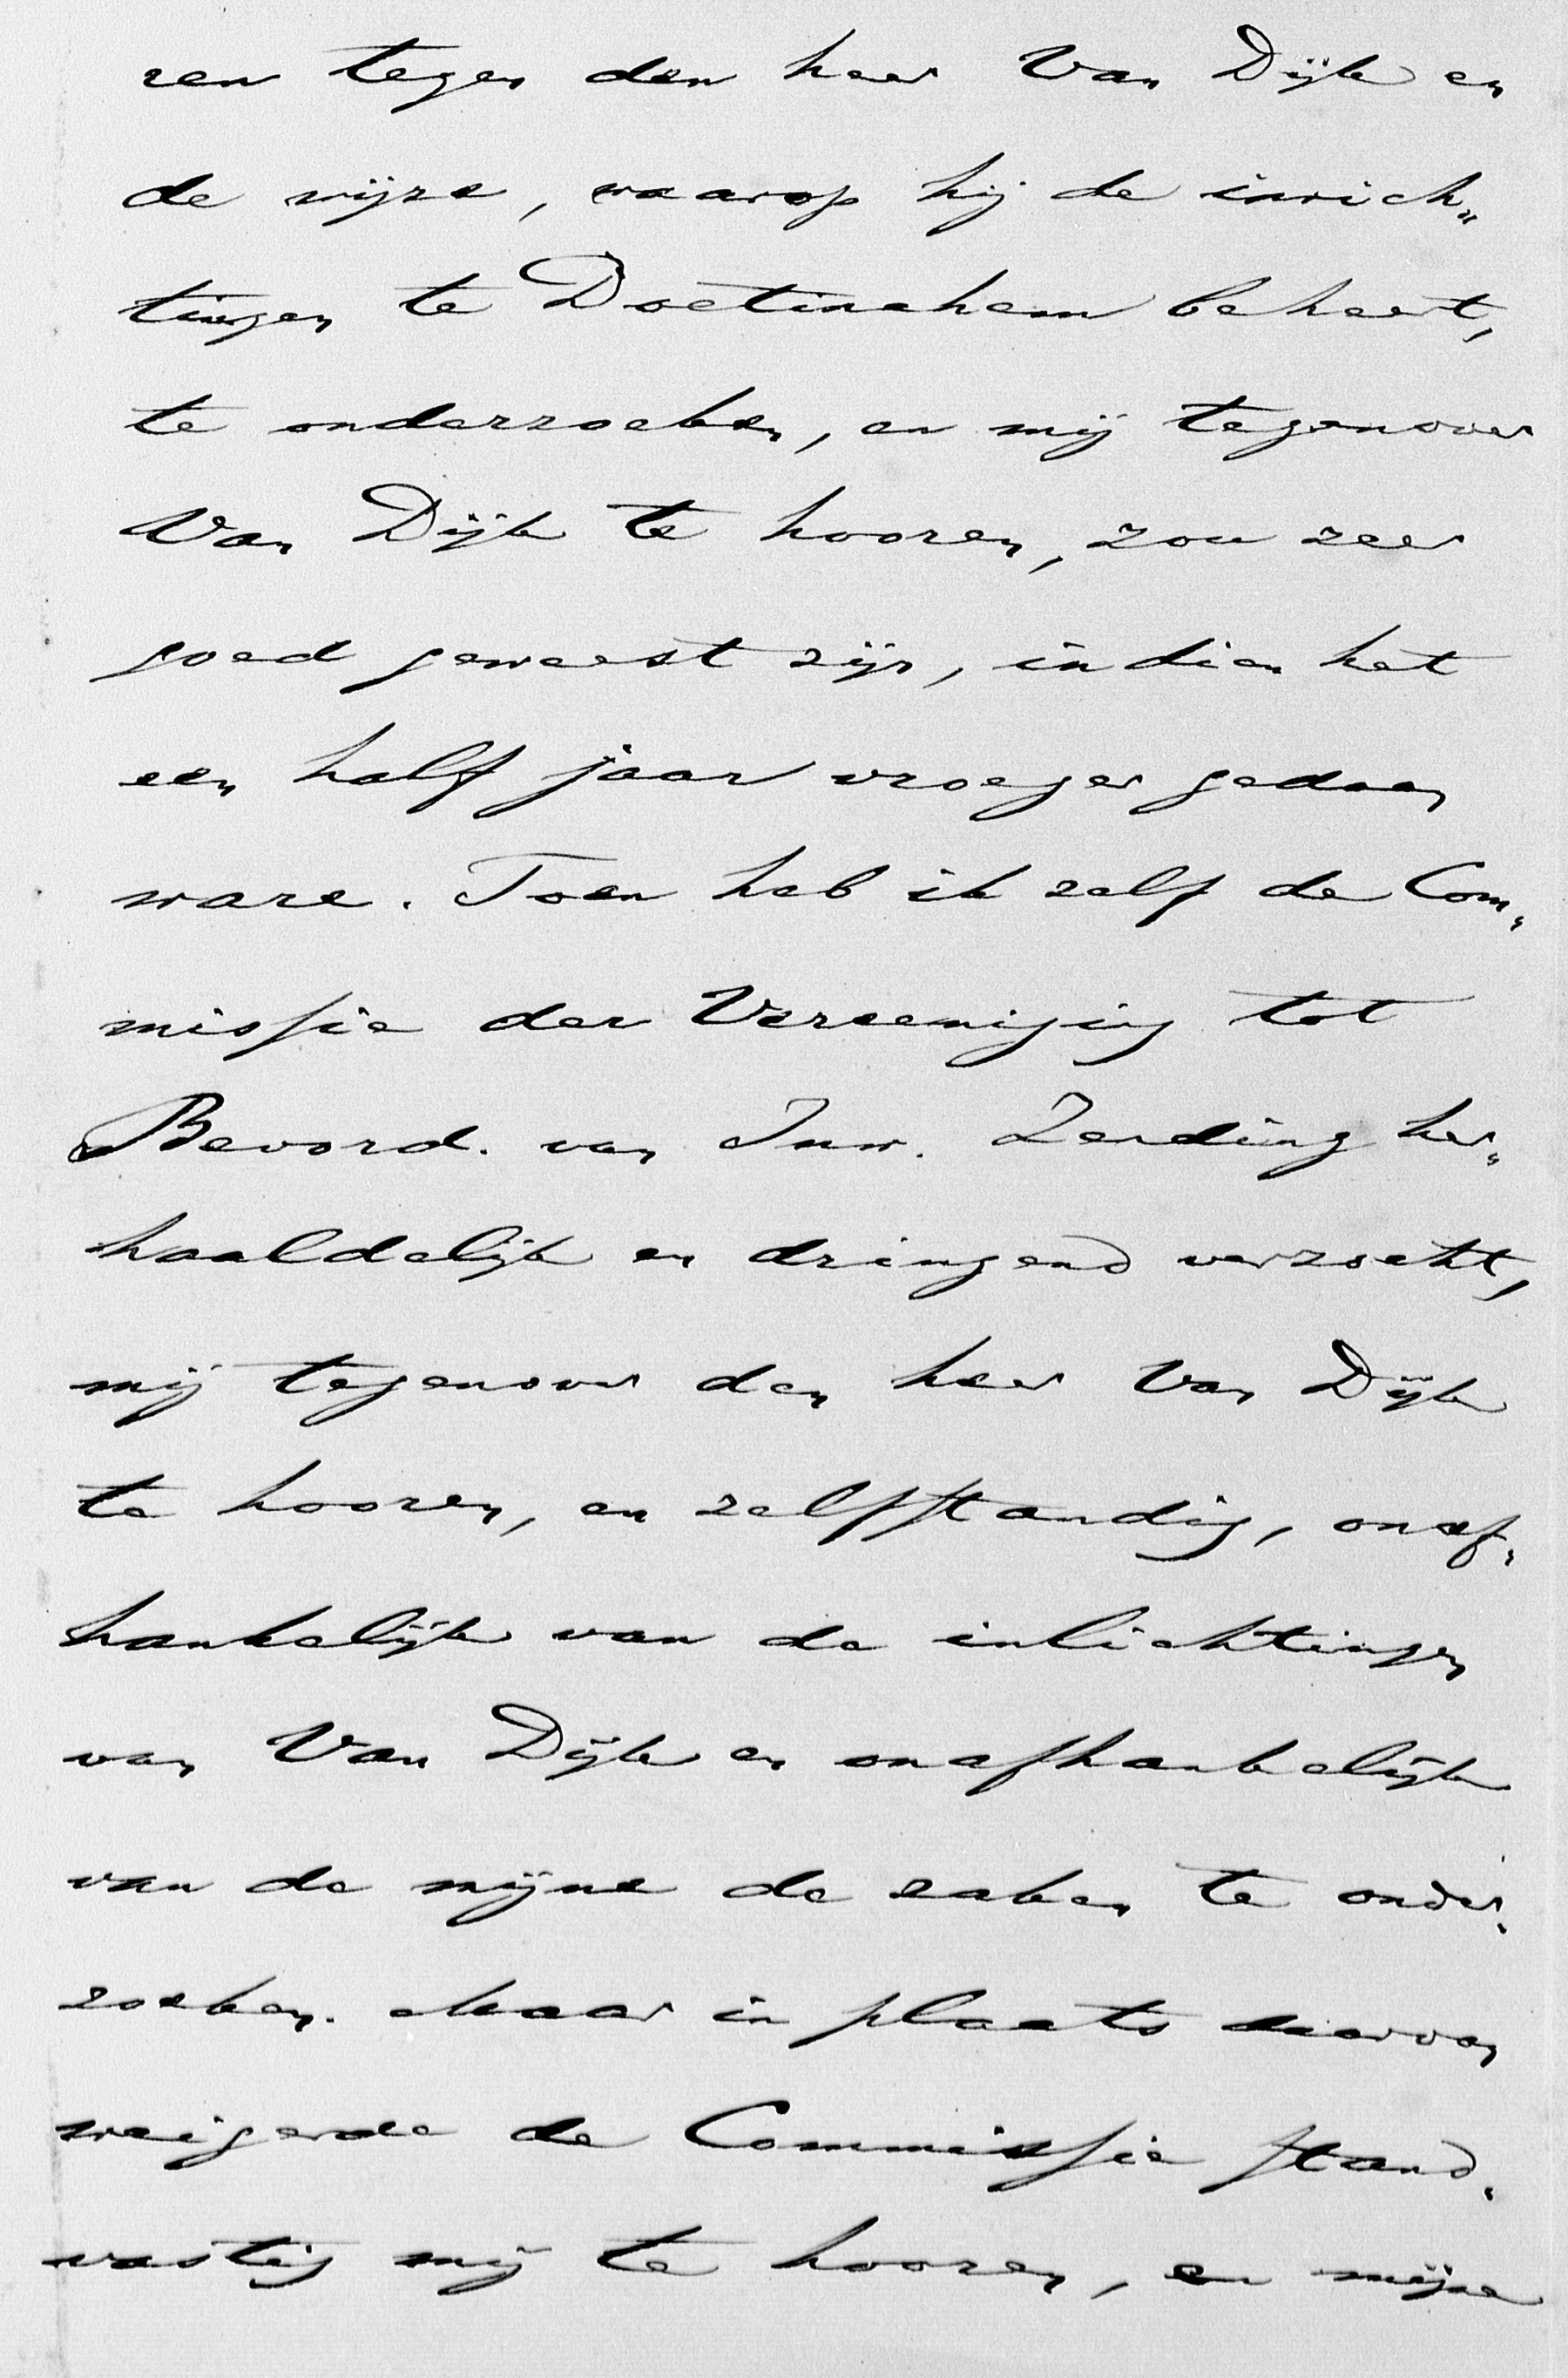 ren tegen den heer Van Dijk en
de wijze, waarop hij de inrich„
tingen te Doetinchem beheert,
te onderzoeken, en mij tegenover
Van Dijk te hooren, zou zeer
goed geweest zijn, indien het
een half jaar vroeger gedaan
ware. Toen heb ik zelf de Com„
missie der Vereeniging tot
Bevord. van Inw. Zending her„
haaldelijk en dringend verzocht,
mij tegenover den heer Van Dijk
te hooren, en zelfstandig, onaf„
hankelijk van de inlichtingen
van Van Dijk en onafhankelijk
van de mijne de zaken te onder„
zoeken. Maar in plaats daarvan
weigerde de Commissie stand„
vastig mij te hooren, en mijne